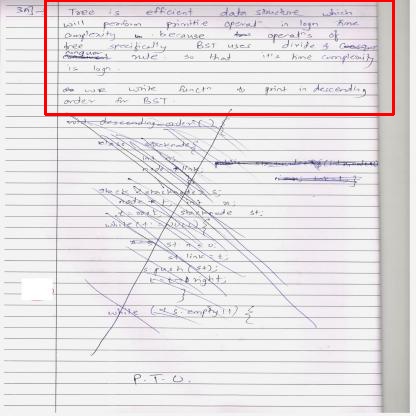 3A]→ Tree is efficient data structure which
will perform primitive operatⁿ in logn time
complexity in because operatⁿs of
tree specifically BST uses divide &
conquer rule so that it's time complexity
is logn.
we write functⁿ to print in descending
order for BST.
void descending_order( )
class stacknode {
int n;
node * link;
stack < stacknode > s;
node * t; int n;
t = root stacknode st;
while (t != NULL) {
st n = 0;
st link = t;
s.push (st);
t = t → right;
}
while (! s.empty()) {
P.T.O.